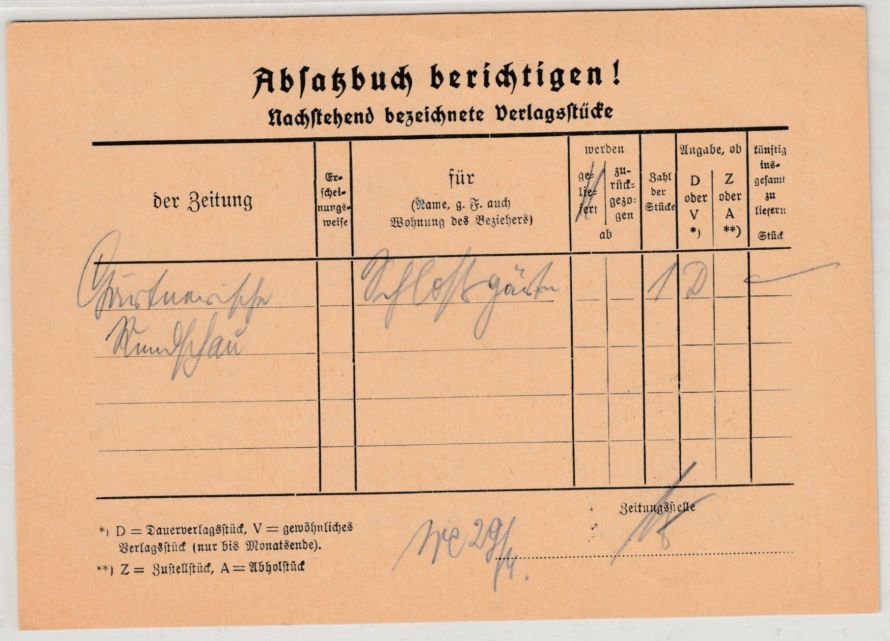 Absatzbuch berichtigen!
Nachstehend bezeichnete Verlagsstücke
der Zeitung
Er-
schei-
nungs-
weise
für
(Name, g. F. auch
Wohnung des Beziehers)
werden
ge-
lie-
fert
zu-
rück-
gezo-
gen
ab
Zahl
der
Stücke
Angabe, ob
D
oder
V
*)
Z
oder
A
**)
künftig
ins-
gesamt
zu
liefern
Stück
Gärtnerische
Rundschau
Schlossgärtn
1
D
Zeitungsstelle
*) D = Dauerverlagsstück, V = gewöhnliches
Verlagsstück (nur bis Monatsende).
**) Z = Zustellstück, A = Abholstück
29/4.